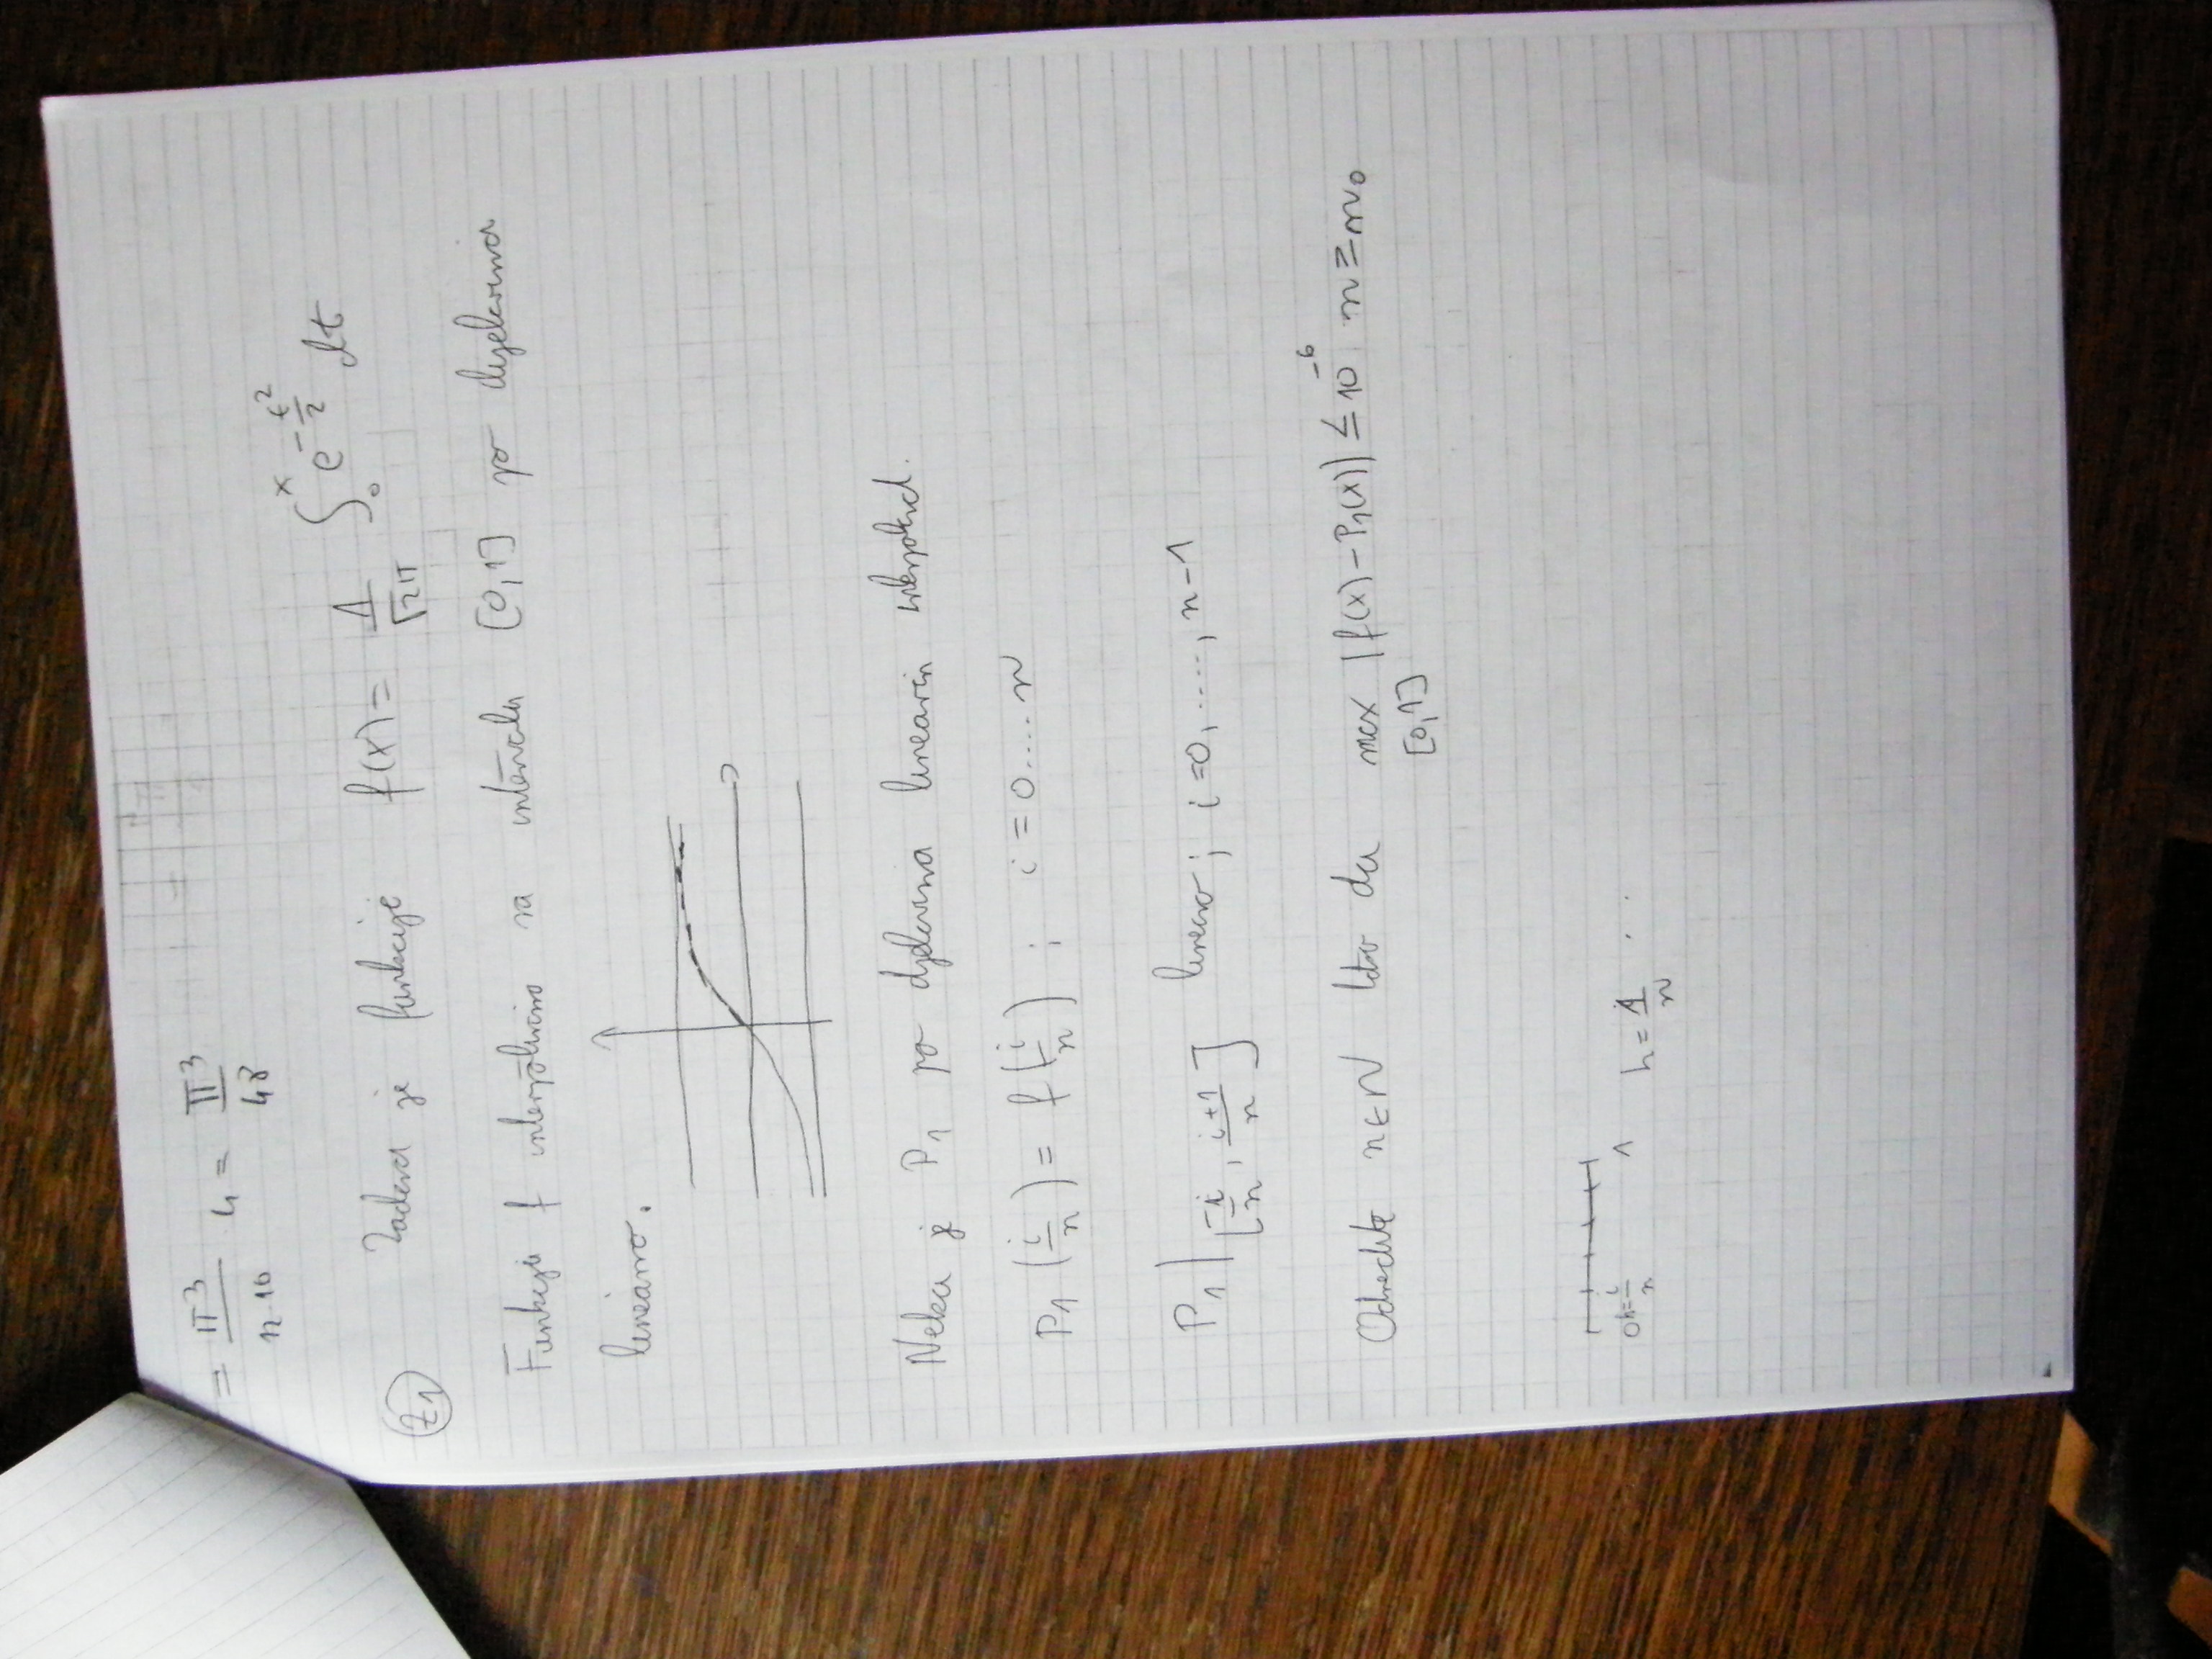 = π³/(n·10) 4 = π³/48
(Z1) Zadana je funkcija f(x) = 1/√(2π) ∫₀ˣ e^(-t²/2) dt
Funkciju f interpoliramo na intervalu [0,1] po dijelovima
linearno.
Neka je P₁ po dijelovima linearni interpoland.
P₁(i/n) = f(i/n) ; i = 0.....n
P₁|[i/n, (i+1)/n] linearno ; i=0, ....., n-1
Odredite n∈N tdo da max |f(x)-P₁(x)| ≤ 10⁻⁶ n ≥ n₀
[0,1]
0 h=i/n 1 h = 1/n . . .